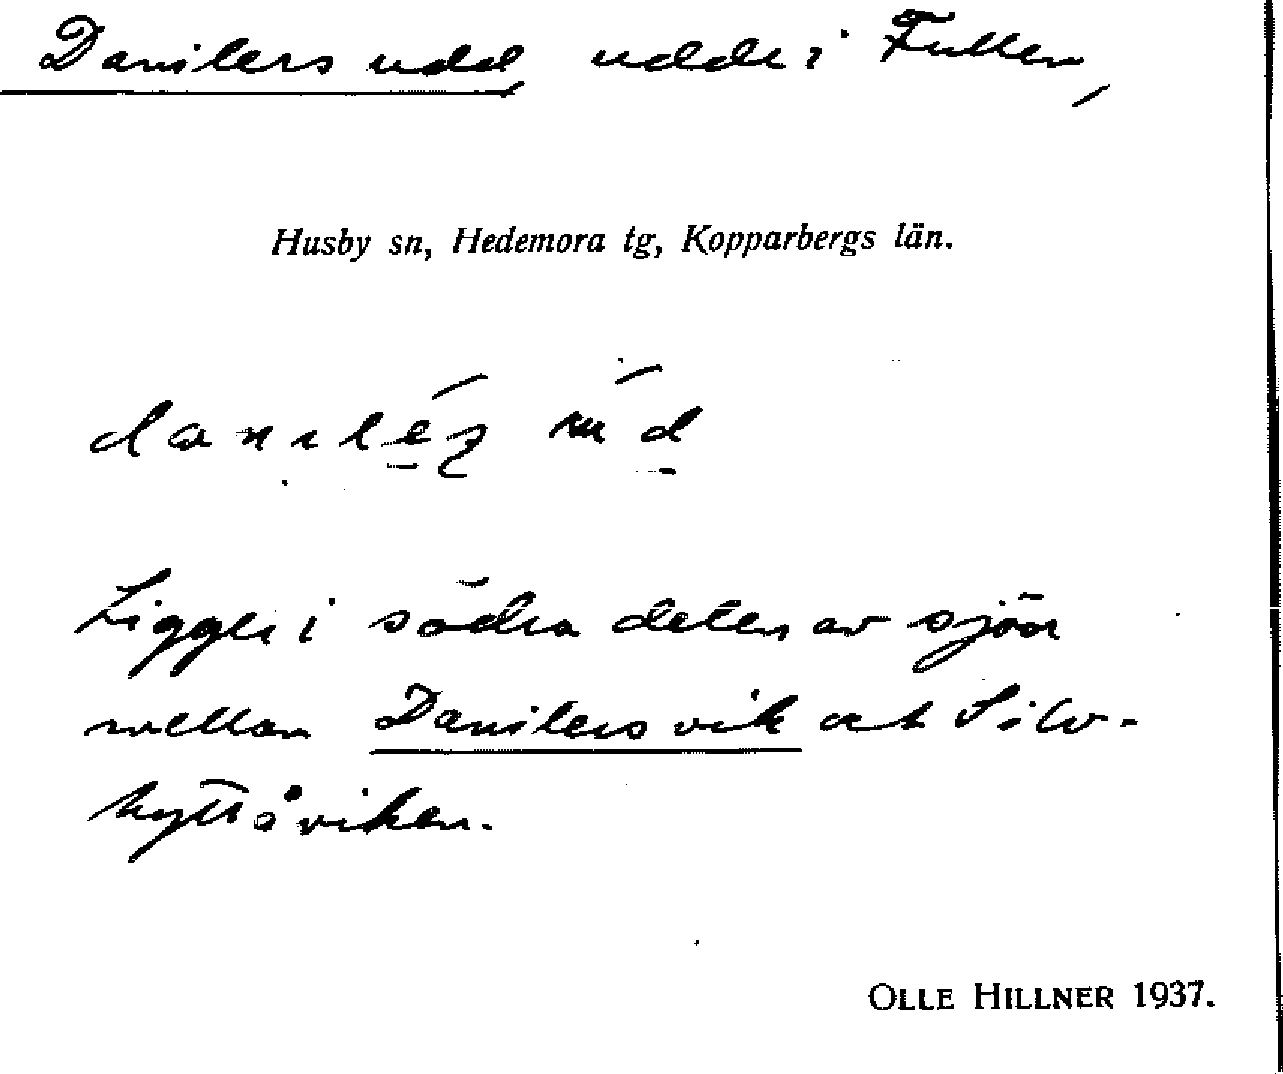 Danilers udd, udde i Fullen,
Husby sn, Hedemora tg, Kopparbergs län.
Ligger i södra delen av sjön
mellan Danilers vik och Silv-
hyttåviken.
OLLE HILLNER 1937.